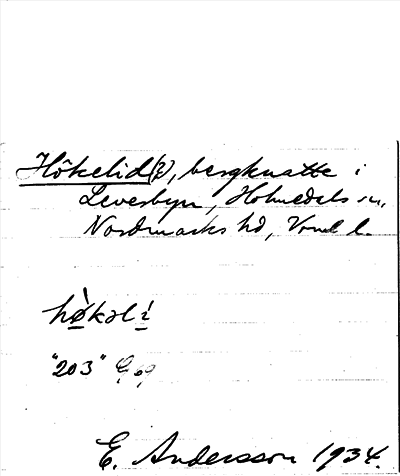 Hökelid(?), bergknatte i
Levesbyn, Holmedals sn,
Nordmarks hd, Vrml l.
hø̀kəlí
"203" G69
E. Andersson 1934.